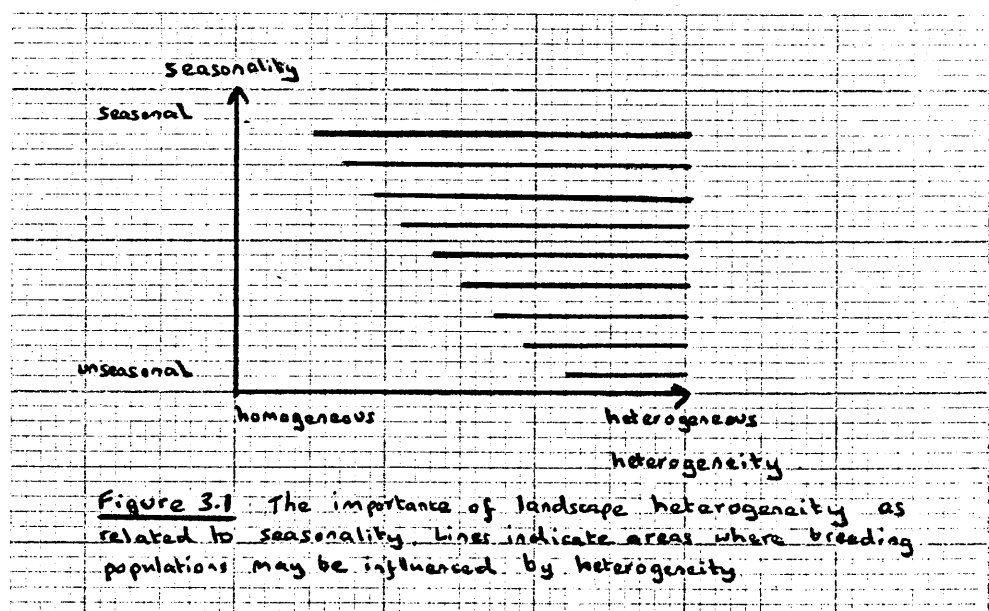 seasonality
seasonal
unseasonal
homogeneous
heterogeneous
heterogeneity
Figure 3.1 The importance of landscape heterogeneity as
related to seasonality. Lines indicate areas where breeding
populations may be influenced by heterogeneity